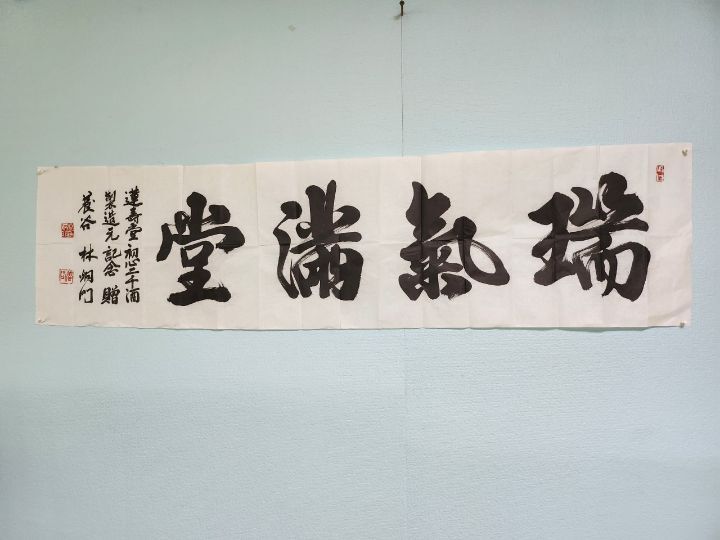 瑞氣滿堂
蓮壽堂 初心三千酒
製造元 記念 贈
茂谷 林炯門